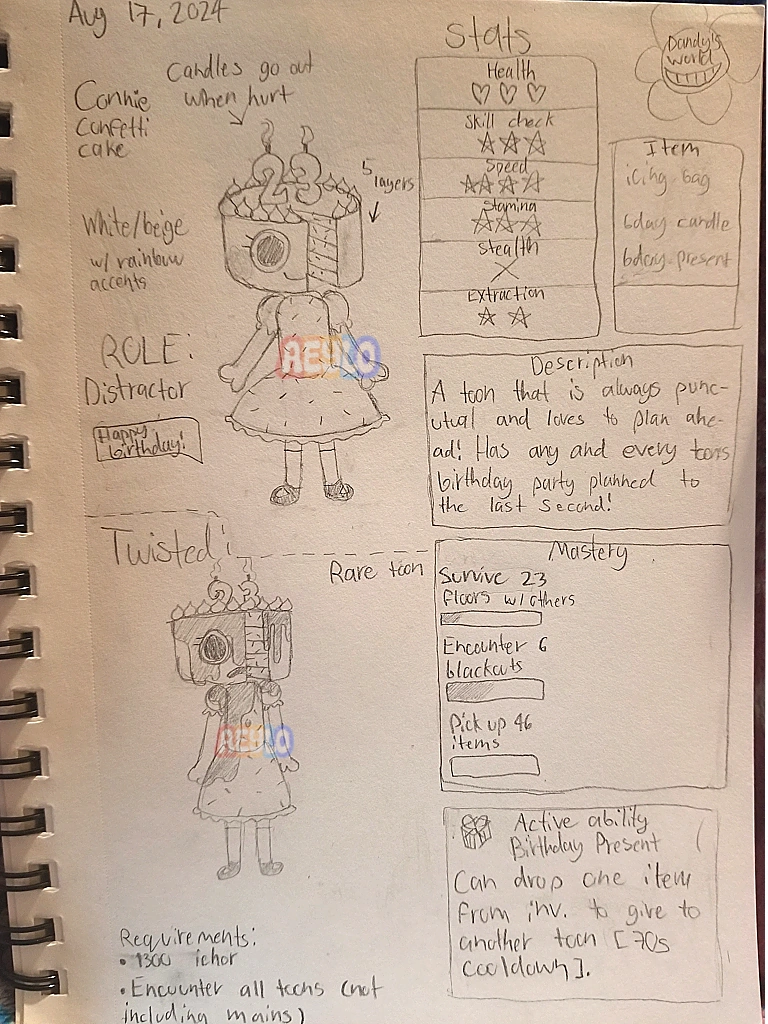 Aug 17, 2024
Candles go out
when hurt
Connie
Confetti
cake
5
layers
White/beige
w/ rainbow
accents
23
ROLE:
Distractor
Happy
birthday!
AEYLO
Stats
Health
Skill check
Speed
Stamina
Stealth
Extraction
Dandy's
world
Item
icing bag
bday candle
bday present
Description
A toon that is always punc-
utual and loves to plan ahe-
ad! Has any and every toons
birthday party planned to
the last second!
Twisted:
Rare toon
23
AEYLO
Mastery
Survive 23
floors w/ others
Encounter 6
blackouts
Pick up 46
items
Active ability
Birthday Present
Can drop one item
from inv. to give to
another toon [70s
cooldown].
Requirements:
• 1300 ichor
• Encounter all toons (not
including mains)